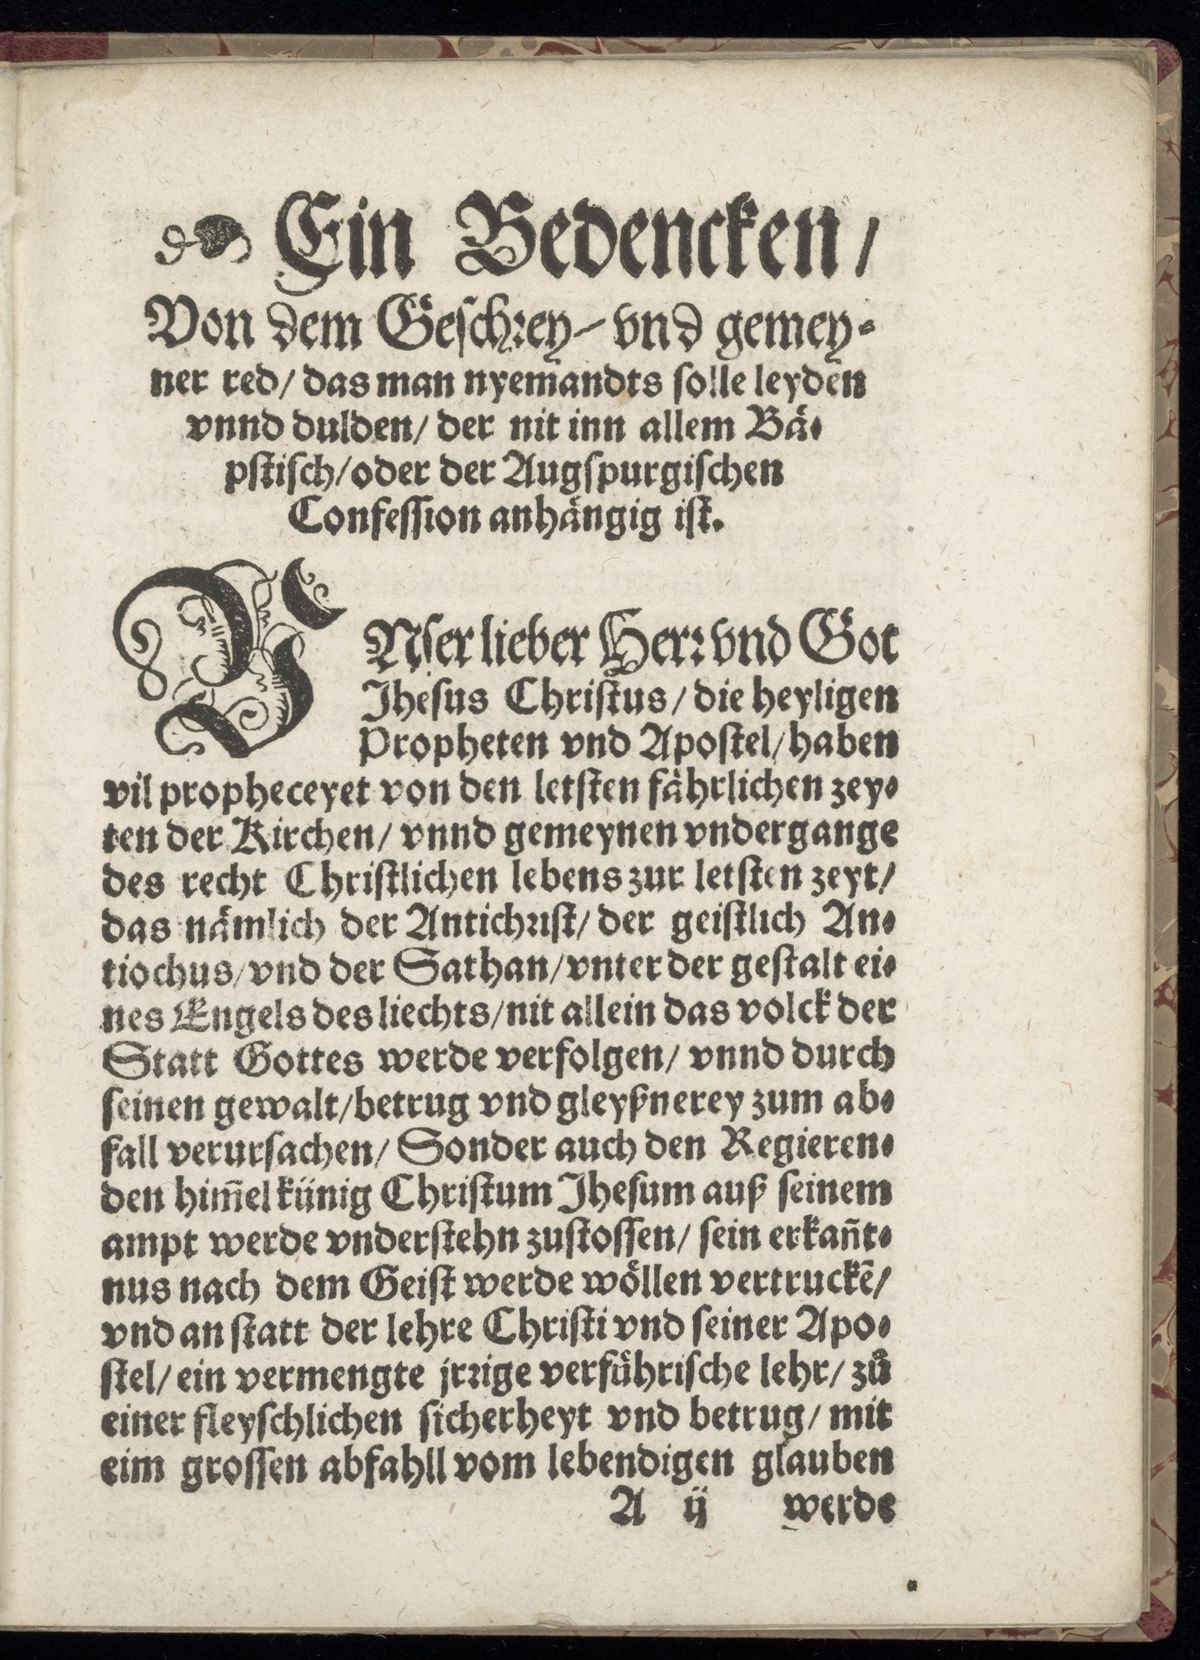 Ein Bedencken/
Von dem Geschrey/ vnd gemey-
ner red/ das man nyemandts solle leyden
vnnd dulden/ der nit inn allem Bä-
pstisch/ oder der Augspurgischen
Confession anhängig ist.
VNser lieber Herr vnd Got
Jhesus Christus/ die heyligen
Propheten vnd Apostel/ haben
vil propheceyet von den letsten fährlichen zey-
ten der Kirchen/ vnnd gemeynen vndergange
des recht Christlichen lebens zur letsten zeyt/
das nämlich der Antichrist/ der geistlich An-
tiochus/ vnd der Sathan/ vnter der gestalt ei-
nes Engels des liechts/ nit allein das volck der
Statt Gottes werde verfolgen/ vnnd durch
seinen gewalt/ betrug vnd gleyßnerey zum ab-
fall verursachen/ Sonder auch den Regieren-
den him̃el künig Christum Jhesum auß seinem
ampt werde vnderstehn zustossen/ sein erkañt-
nus nach dem Geist werde wöllen vertruckẽ/
vnd an statt der lehre Christi vnd seiner Apo-
stel/ ein vermengte jrrige verführische lehr/ zů
einer fleyschlichen sicherheyt vnd betrug/ mit
eim grossen abfahll vom lebendigen glauben
A ij werde